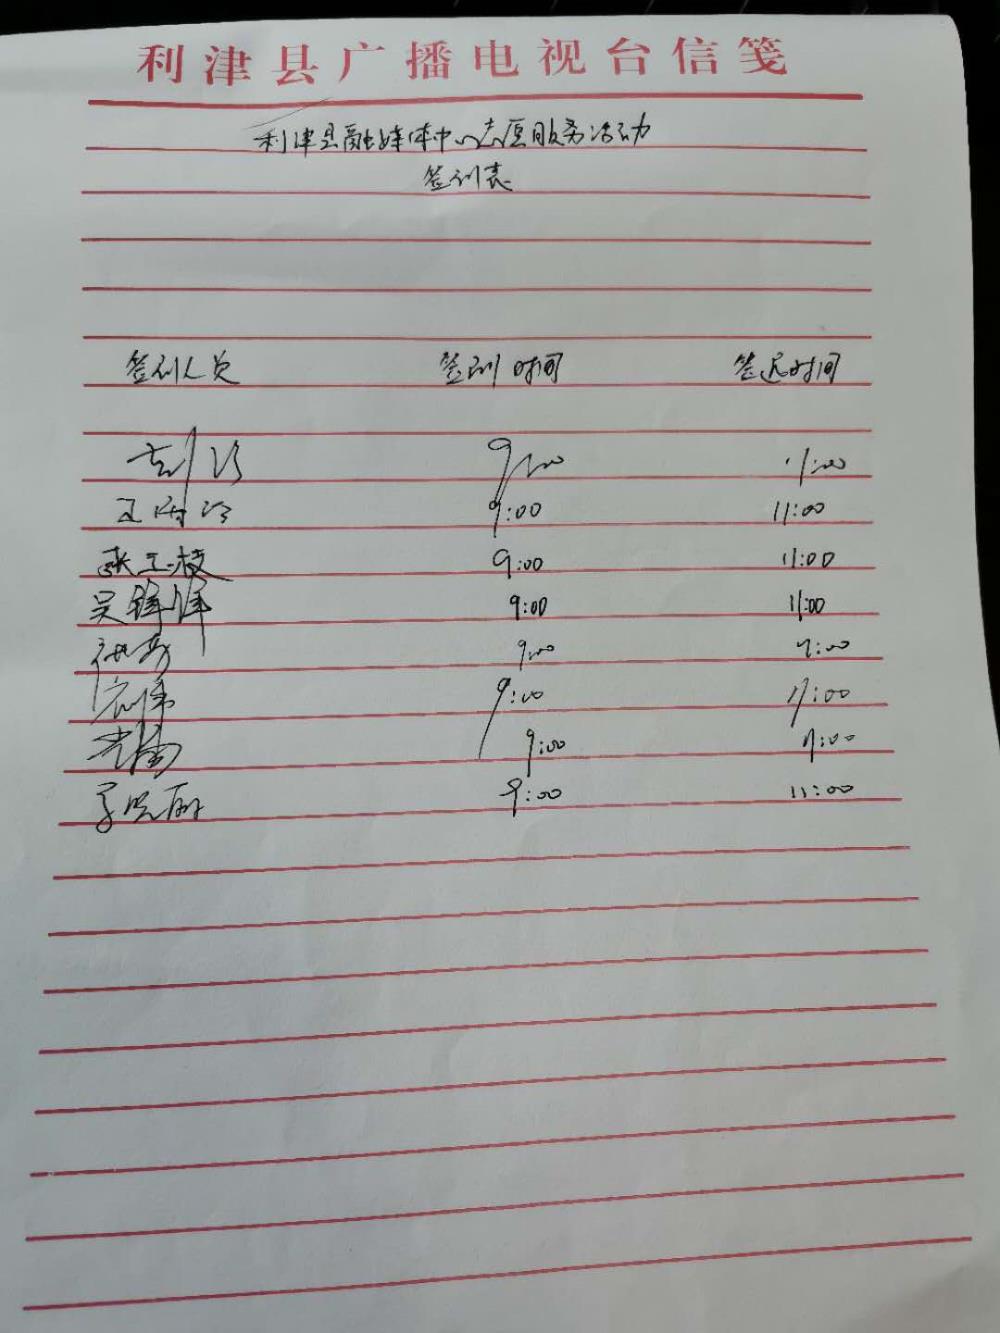 利津县广播电视台信笺
利津县融媒体中心志愿服务活动
签到表
签到人员 签到时间 签退时间
9:00 11:00
王雨 9:00 11:00
张玉枝 9:00 11:00
吴锋锋 9:00 11:00
9:00 11:00
9:00 11:00
9:00 11:00
9:00 11:00